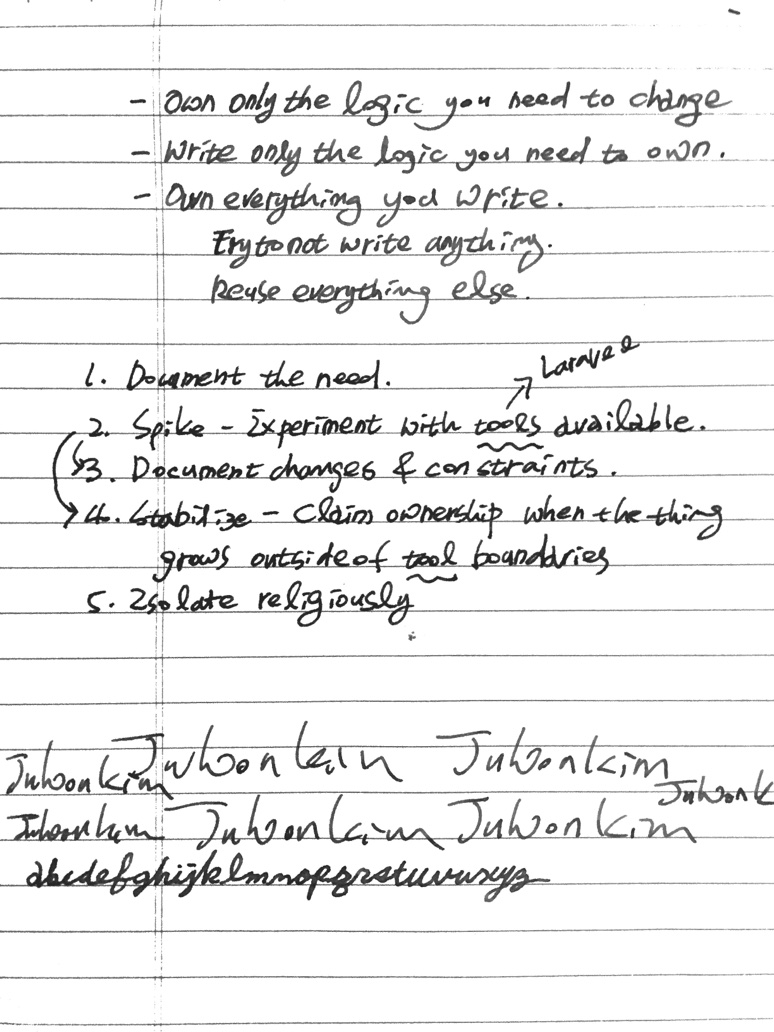 - Own only the logic you need to change
- Write only the logic you need to own.
- Own everything you write.
Try to not write anything.
Reuse everything else.
Laravel
1. Document the need.
2. Spike - Experiment with tools available.
3. Document changes & constraints.
4. Stabilize - Claim ownership when the thing
grows outside of tool boundaries
5. Isolate religiously
Juwon kim Juwon kim Juwon kim
Juwon k
Juwon kim Juwon kim Juwon kim
abcdefghijklmnopqrstuvwxyz